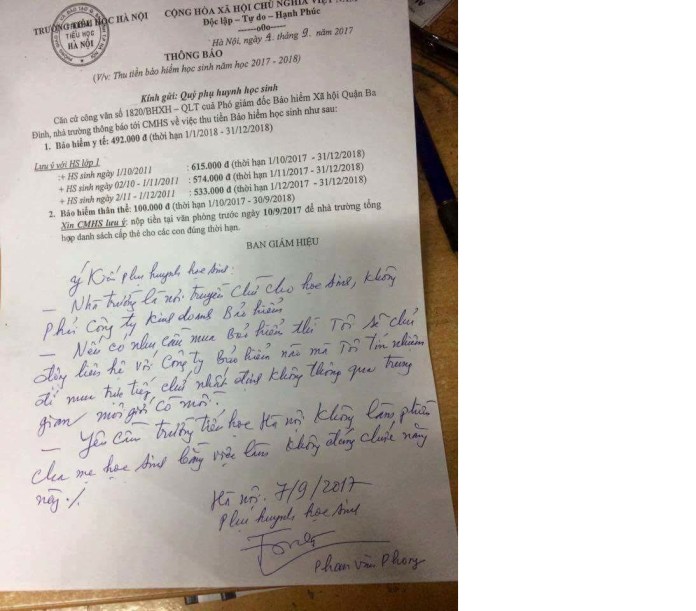 TRƯỜNG TIỂU HỌC HÀ NỘI
CỘNG HÒA XÃ HỘI CHỦ NGHĨA VIỆT NAM
Độc lập – Tự do – Hạnh Phúc
-----o0o-----
TIỂU HỌC
HÀ NỘI
Hà Nội, ngày 4 tháng 9 năm 2017
THÔNG BÁO
(V/v: Thu tiền bảo hiểm học sinh năm học 2017 - 2018)
Kính gửi: Quý phụ huynh học sinh
Căn cứ công văn số 1820/BHXH – QLT của Phó giám đốc Bảo hiểm Xã hội Quận Ba
Đình, nhà trường thông báo tới CMHS về việc thu tiền Bảo hiểm học sinh như sau:
1. Bảo hiểm y tế: 492.000 đ (thời hạn 1/1/2018 - 31/12/2018)
Lưu ý với HS lớp 1
:+ HS sinh ngày 1/10/2011 : 615.000 đ (thời hạn 1/10/2017 - 31/12/2018)
+ HS sinh ngày 02/10 - 1/11/2011 : 574.000 đ (thời hạn 1/11/2017 - 31/12/2018)
+ HS sinh ngày 2/11 - 1/12/2011 : 533.000 đ (thời hạn 1/12/2017 - 31/12/2018)
2. Bảo hiểm thân thể: 100.000 đ (thời hạn 1/10/2017 - 30/9/2018)
Xin CMHS lưu ý: nộp tiền tại văn phòng trước ngày 10/9/2017 để nhà trường tổng
hợp danh sách cấp thẻ cho các con đúng thời hạn.
BAN GIÁM HIỆU
Ý Kiến phụ huynh học sinh:
– Nhà trường là nơi truyền chữ cho học sinh, không
phải Công ty kinh doanh Bảo hiểm
– Nếu có nhu cầu mua Bảo hiểm thì Tôi sẽ chủ
động liên hệ với Công ty Bảo hiểm nào mà Tôi tín nhiệm
để mua trực tiếp, chứ nhất định không thông qua trung
gian môi giới cò mồi.
– Yêu cầu trường tiểu học Hà nội không làm phiền
cha mẹ học sinh bằng việc làm không đúng chức năng
này ./.
Hà nội. 7/9/2017
Phụ huynh học sinh
Phan văn Phong